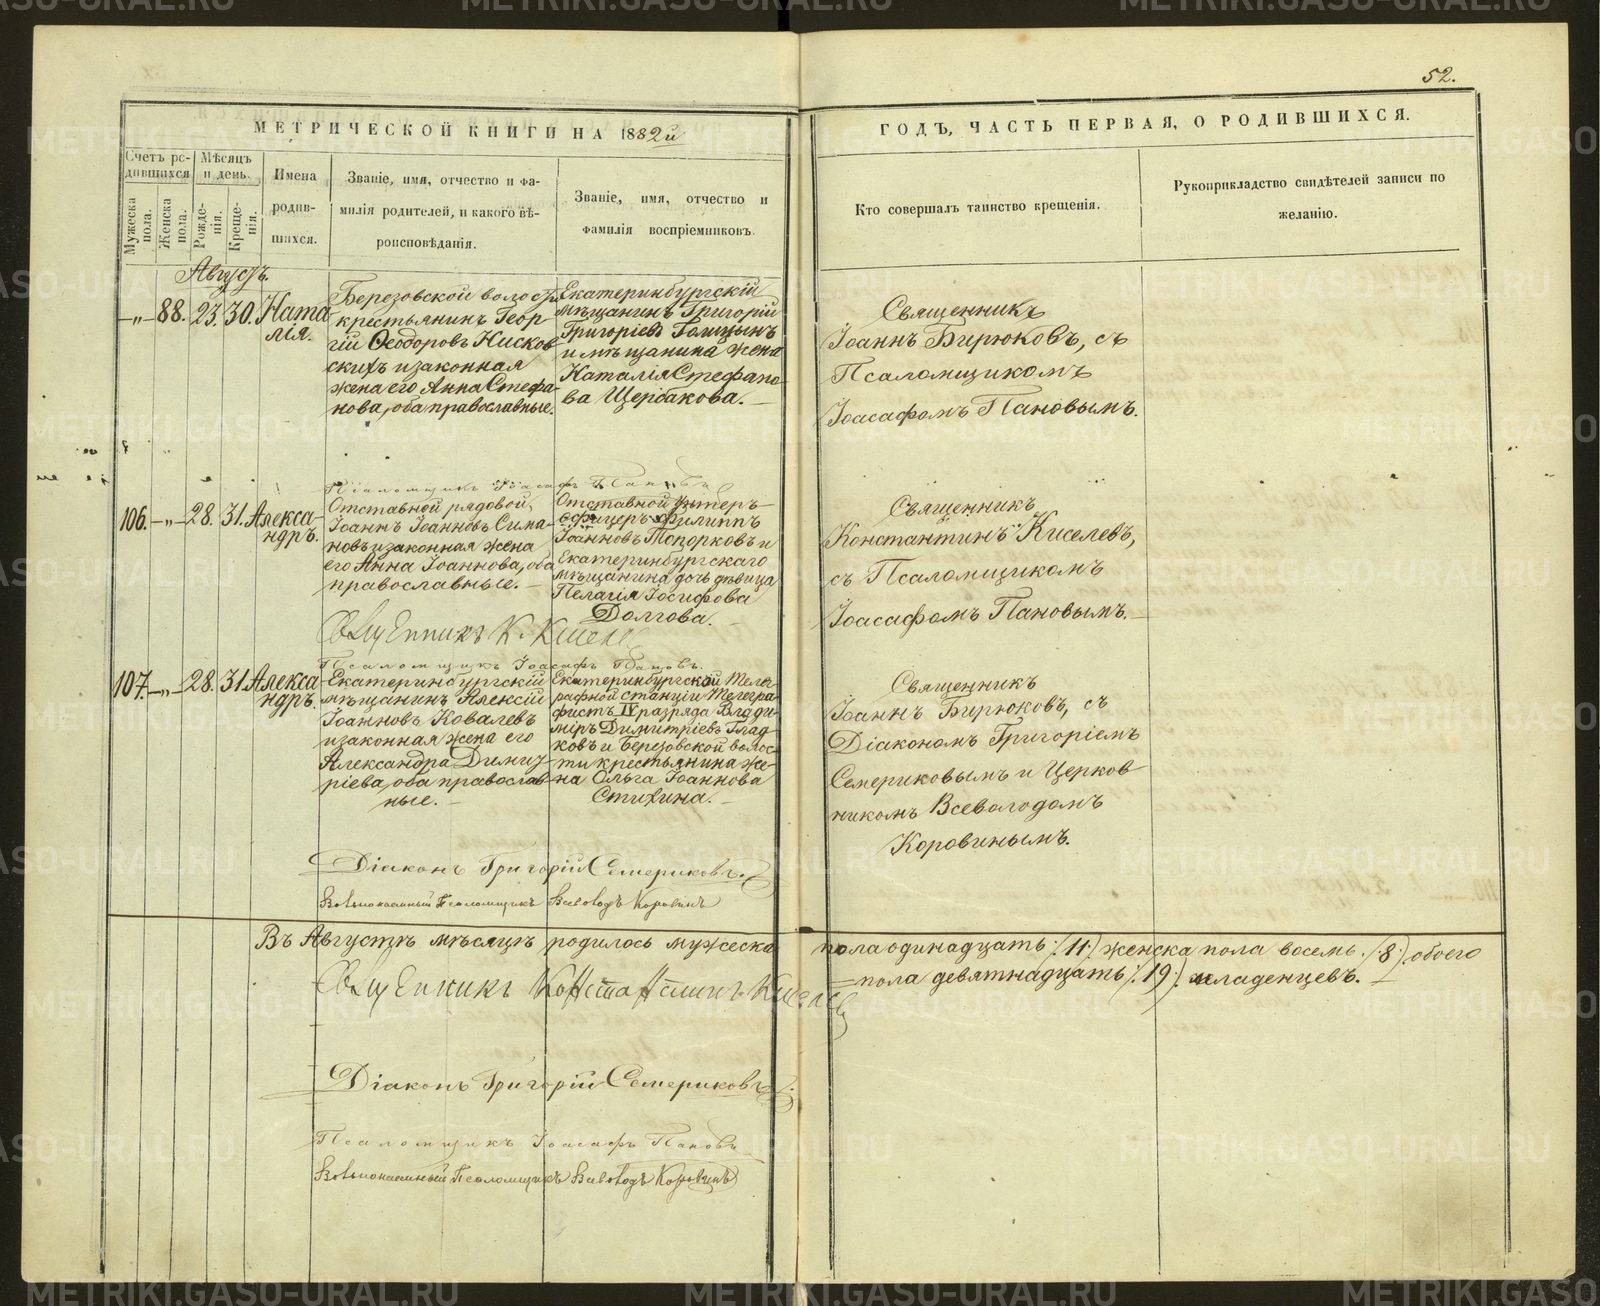 52.
МЕТРИЧЕСКОЙ КНИГИ НА 1882й
ГОДЪ, ЧАСТЬ ПЕРВАЯ, О РОДИВШИХСЯ.
Счетъ родившихся
Мужеска пола.
Женска пола.
Мѣсяцъ и день.
Рожденія.
Крещенія.
Имена
родив-
шихся.
Званіе, имя, отчество и фа-
милія родителей, и какого вѣ-
роисповѣданія.
Званіе, имя, отчество и
фамилія воспріемниковъ.
Кто совершалъ таинство крещенія.
Рукоприкладство свидѣтелей записи по
желанію.
Августъ.
—„— 88. 23. 30. Ната
лія.
Березовской волости
крестьянинъ Геор
гій Ѳеодоровъ Нисков
скихъ и законная
жена его Анна Стефа-
нова, оба православные.
Екатеринбургскій
мѣщанинъ Григорій
Григоріевъ Голицынъ
и мѣщанина жена
Наталія Стефано-
ва Щербакова.—
Священникъ
Іоаннъ Бирюковъ, съ
Псаломщикомъ
Іоасафомъ Пановымъ.
Псаломщикъ Іоасафъ Пановъ
106. —„— 28. 31. Алекса-
ндръ.
Отставной рядовой,
Іоаннъ Іоанновъ Сима-
новъ и законная жена
его Анна Іоаннова, оба
православные.—
Отставной унтеръ-
офицеръ Филиппъ
Іоанновъ Топорковъ и
Екатеринбургскаго
мѣщанина дочь дѣвица
Пелагія Іосифова
Долгова.—
Священникъ
Константинъ Киселевъ,
съ Псаломщикомъ
Іоасафомъ Пановымъ.—
Священникъ К. Киселев
Псаломщикъ Іоасафъ Пановъ.
107. —„— 28. 31. Алекса-
ндръ.
Екатеринбургскій
мѣщанинъ Алексій
Іоанновъ Ковалевъ
и законная жена его
Александра Димит-
ріева, оба православ-
ные.—
Екатеринбургской Телег-
рафной станціи Телегра-
фистъ IV разряда Влади-
міръ Димитріевъ Глад-
ковъ и Березовской волос-
ти крестьянина же-
на Ольга Іоаннова
Стихина.—
Священникъ
Іоаннъ Бирюковъ, съ
Діакономъ Григоріемъ
Семериковымъ и Церков
никомъ Всеволодомъ
Коровинымъ.
Діаконъ Григорій Семериковъ.
Вольнонаемный Псаломщикъ Всеволодъ Коровинъ
Въ Августѣ мѣсяцѣ родилось мужеска пола одинадцать /.11./ женска пола восемь /.8./ обоего
пола девятнадцать /.19./ младенцевъ.—
Священникъ Константинъ Киселев
Діаконъ Григорій Семериковъ.
Псаломщикъ Іоасафъ Пановъ
Вольнонаемный Псаломщикъ Всеволодъ Коровинъ
METRIKI.GASO-URAL.RU